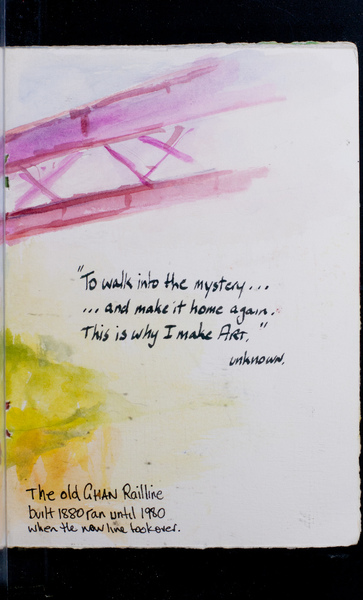 "To walk into the mystery...
... and make it home again.
This is why I make ART."
unknown.
The old GHAN Railline
built 1880 ran until 1980
when the new line tookover.